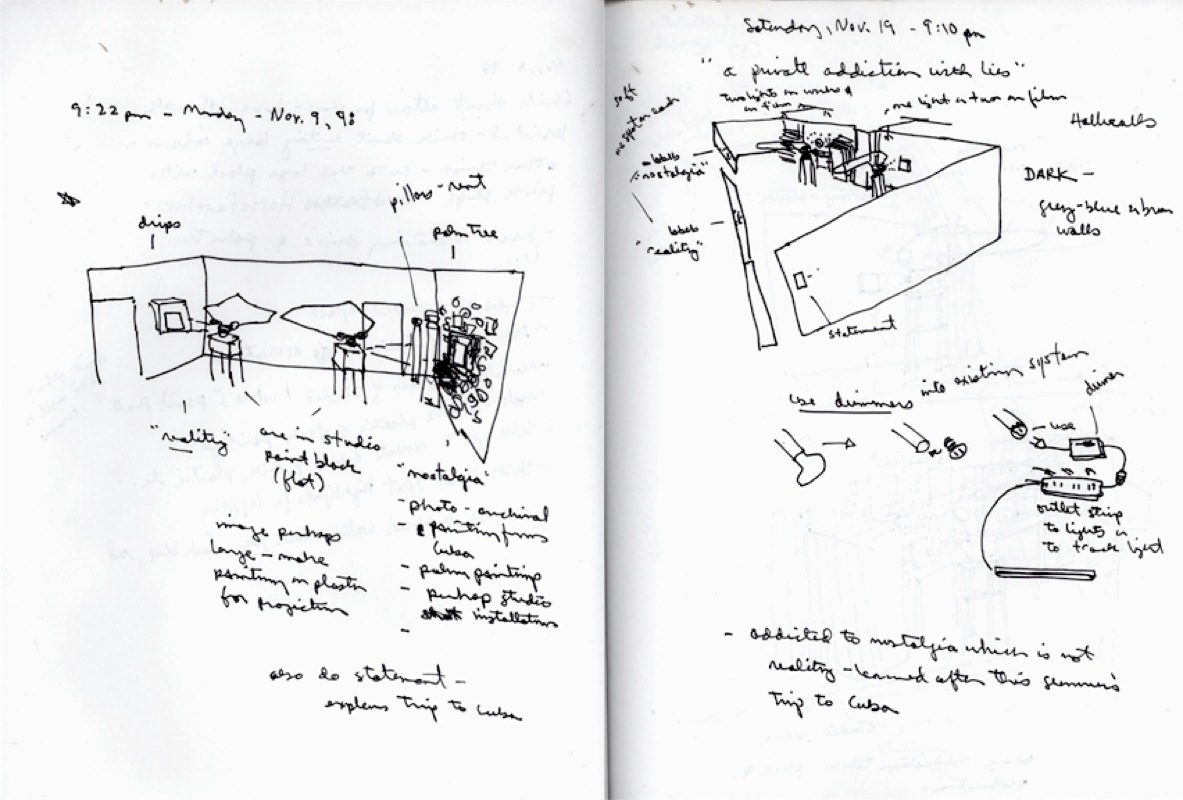 9:22 pm - Monday - Nov. 9, 98
drips
pillars - rent
palm tree
"reality"
are in studio
paint black
(flat)
"nostalgia"
image perhaps
large - make
painting on plastic
for projection
- photo - archival
- painting from
Cuba
- palm painting
- perhap studio
installations
-
also do statement -
explens trip to Cuba
Saturday, Nov. 19 - 9:10 pm
"a private addiction with lies"
two lights on
on film
one light on film
Hallwalls
soft
labels
"nostalgia"
DARK -
grey-blue
walls
labels
"reality"
statement
use dimmers into existing system
dimmer
- use
outlet strip
to lights or
to track light
- addicted to nostalgia which is not
reality - learned after this summer's
trip to Cuba